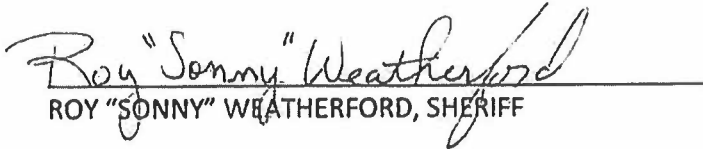 Roy "Sonny" Weatherford
ROY "SONNY" WEATHERFORD, SHERIFF